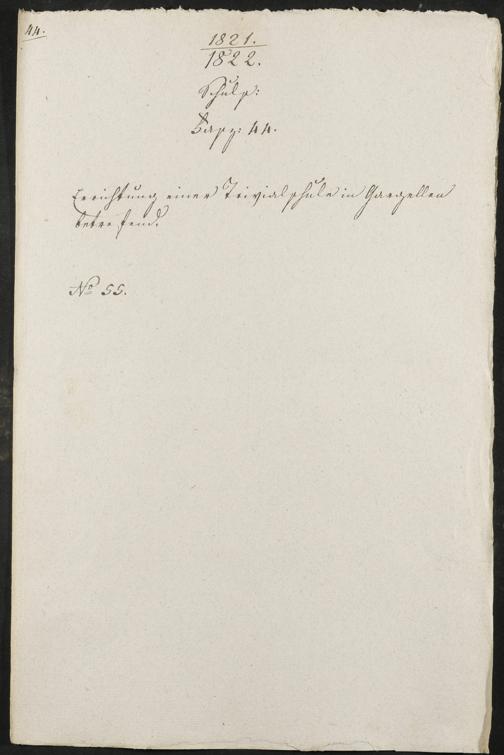 44.
1821.
1822.
Schulß:
44.
Errichtung einer Trivialschule in Gargellen
betreffend.
No 55.